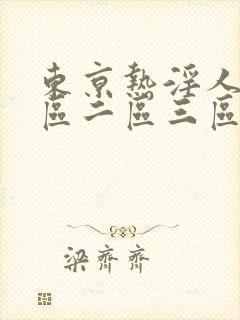 東京熱淫人
區二區三區
梁齊齊